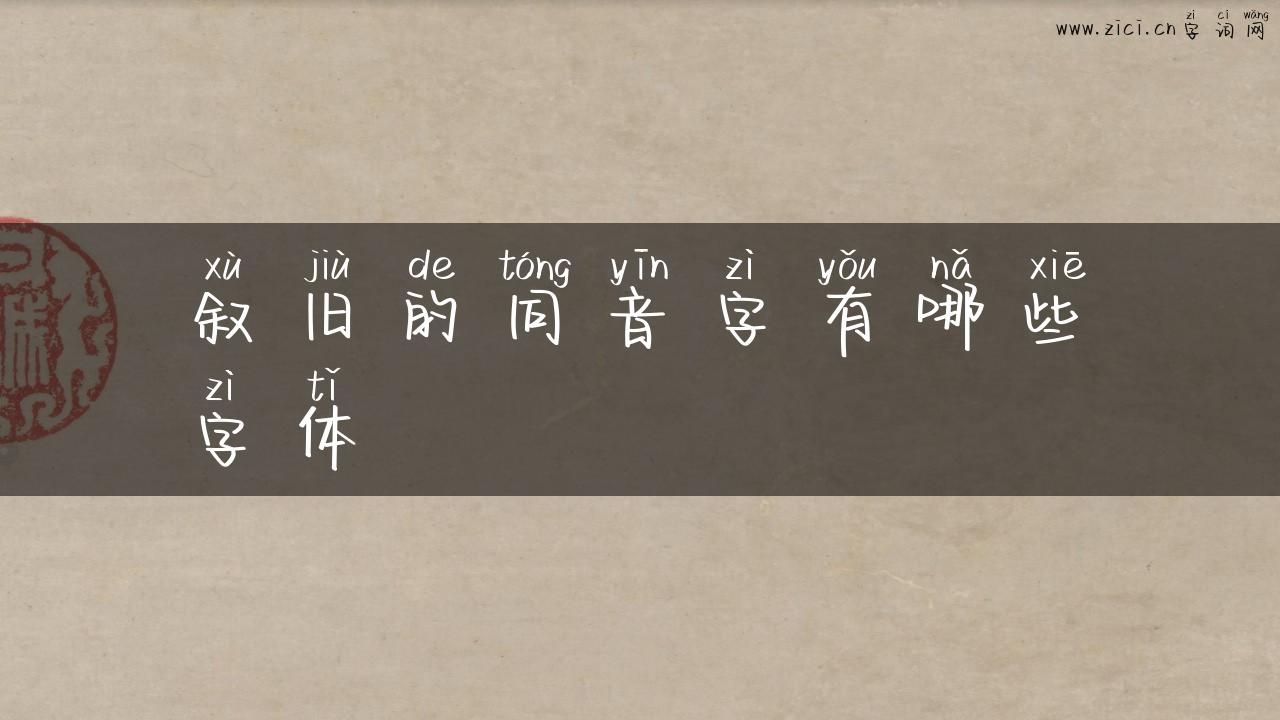 zì cí wǎng
www.zici.cn字词网
xù jiù de tóng yīn zì yǒu nǎ xiē
叙旧的同音字有哪些
zì tǐ
字体